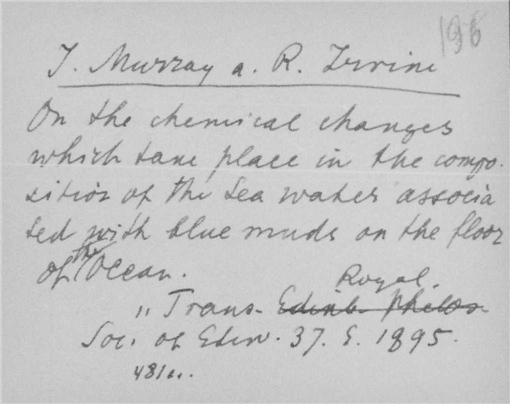 196
J. Murray a. R. Irvine
On the chemical changes
which take place in the compo-
sition of the Sea water associa
ted with blue muds on the floor
of the Ocean.
Royal.
„ Trans. Edinb. Philos.
Soc. of Edin. 37. S. 1895.
481.